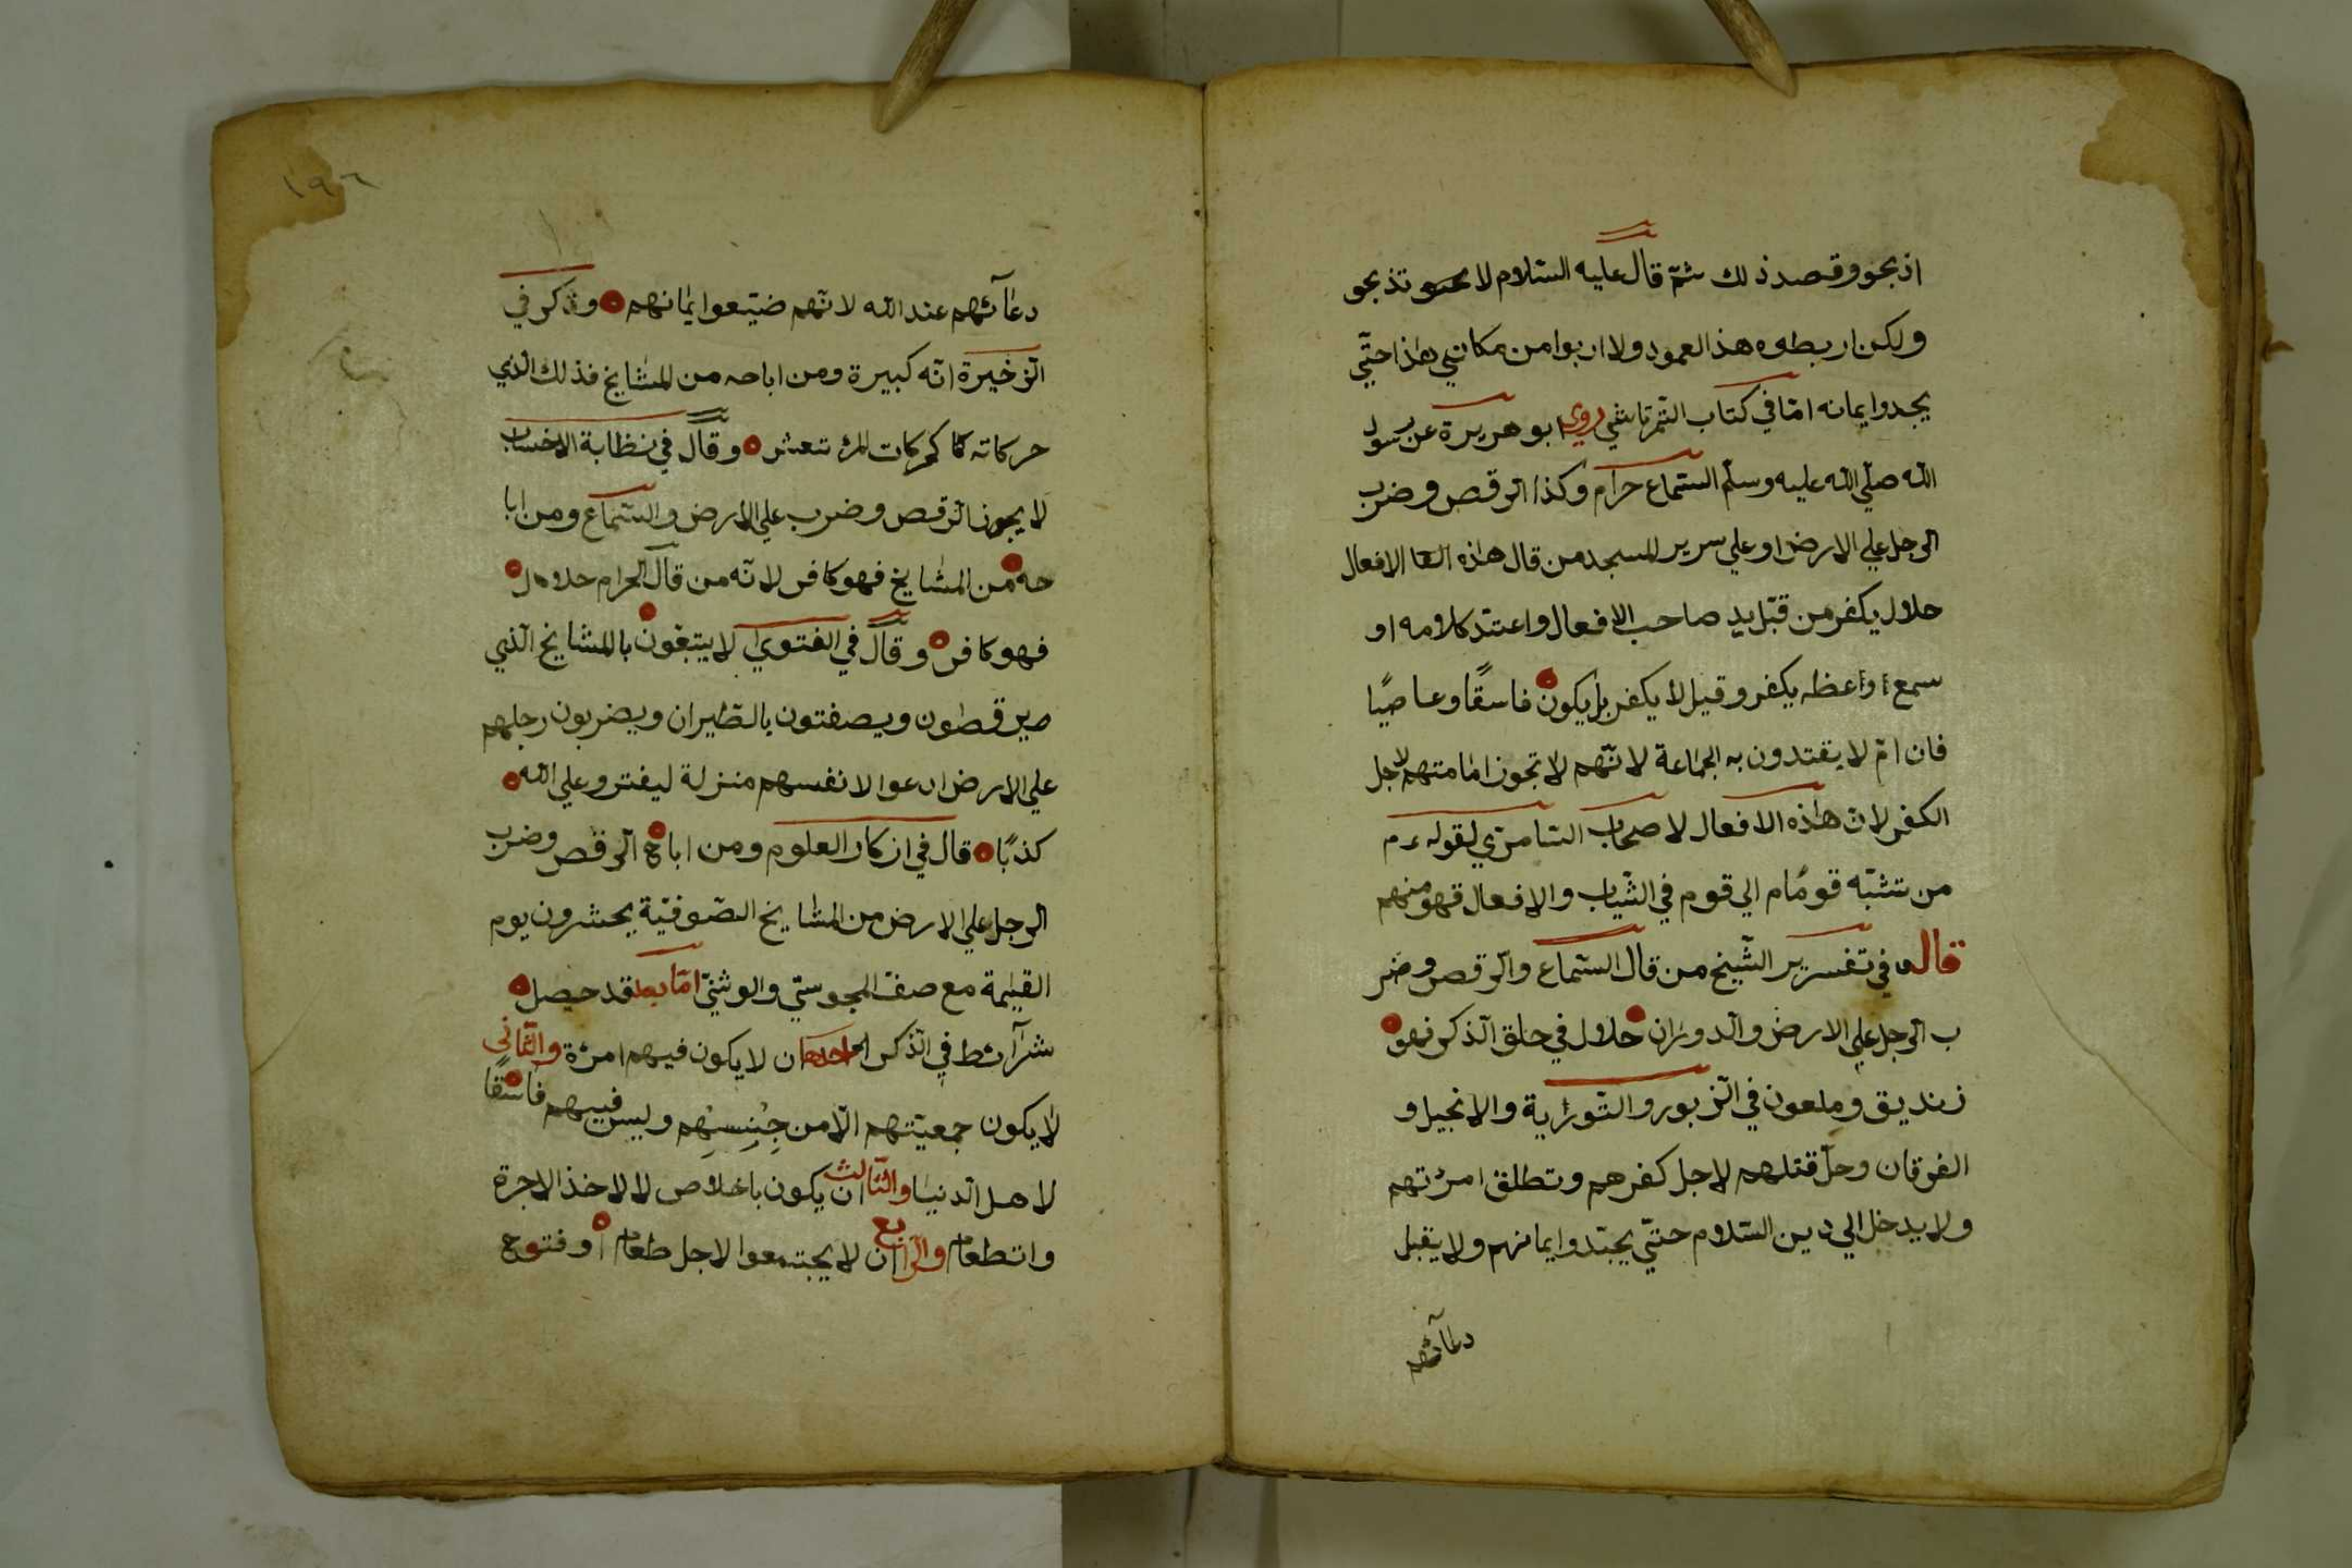 اذبحو وقصد ذلك ثمّ قال عليه السّلام لا تذبحو
ولكن اربطوه هذا العمود ولا اربوا من مكاني هٰذا حتّي
يجدوا ايمانه امّا في كتاب التّمرتاشي روي ابو هريرة عن رسول
اللّه صلّي اللّه عليه وسلّم السّماع حرام وكذا الرّقص وضرب
الرجل علي الارض او علي سرير المسجد من قال هٰذه الافعال
حلال يكفر من قبّل يد صاحب الافعال واعتقد كلامه او
سمع اواعظه يكفر وقيل لا يكفر بل يكون فاسقًا وعاصيًا
فان امّ لا يقتدون به الجماعة لانّهم لا تجوز امامتهم لاجل
الكفر لانّ هٰذه الافعال لاصحاب السّامري لقوله ءم
من تشبّه قومًام الي قوم في الثّياب والافعال فهو منهم
قال في تفسير الشّيخ من قال السّماع والرّقص وضر
ب الرجل علي الارض والدوران حلال في حلق الذكر فهو
زنديق وملعون في الزّبور والتّوراية والانجيل و
الفرقان وحلّ قتلهم لاجل كفرهم وتطلق امرئتهم
ولا يدخل الي دين السّلام حتّي يجدّدوا ايمانهم ولا يقبل
دعآئهم
١٩٦
دعآئهم عند اللّه لانّهم ضيّعوا ايمانهم وذكر في
الزخيرة انّه كبيرة ومن اباحه من المشايخ فذلك الّذي
حركاته كا كركات المرٔتعش وقال في نظابة الاخساب
لا يجوز الرّقص وضرب علي الارض والسّماع ومن ابا
حه من المشايخ فهو كافر لانّه من قال الحرام حلال
فهو كافر وقال في الفتوي لا يتبعّون بالمشايخ الّذي
يرقطون ويصفتون بالطّيران ويضربون رجلهم
علي الارض ادعوا لانفسهم منزلة ليفترو علي اللّه
كذبًا قال في ازكار العلوم ومن اباح الرّقص وضرب
الرجل علي الارض من المشايخ الصّوفيّة يحشرون يوم
القيٰمة مع صفّ المجوسيّ والوثنيّ امّا قد حصل
شرآئط في الذّكر احدها ان لا يكون فيهم امرئة والثّاني
لا يكون جمعيّتهم الّا من جِنسِهِم وليس فيهم فاسقًا
لاهل الدنيا والثّالث ان يكون باخلاص لا لاخذ الاجرة
واتطعام والرّابع ان لا يجتمعوا لاجل طعام او فتوح